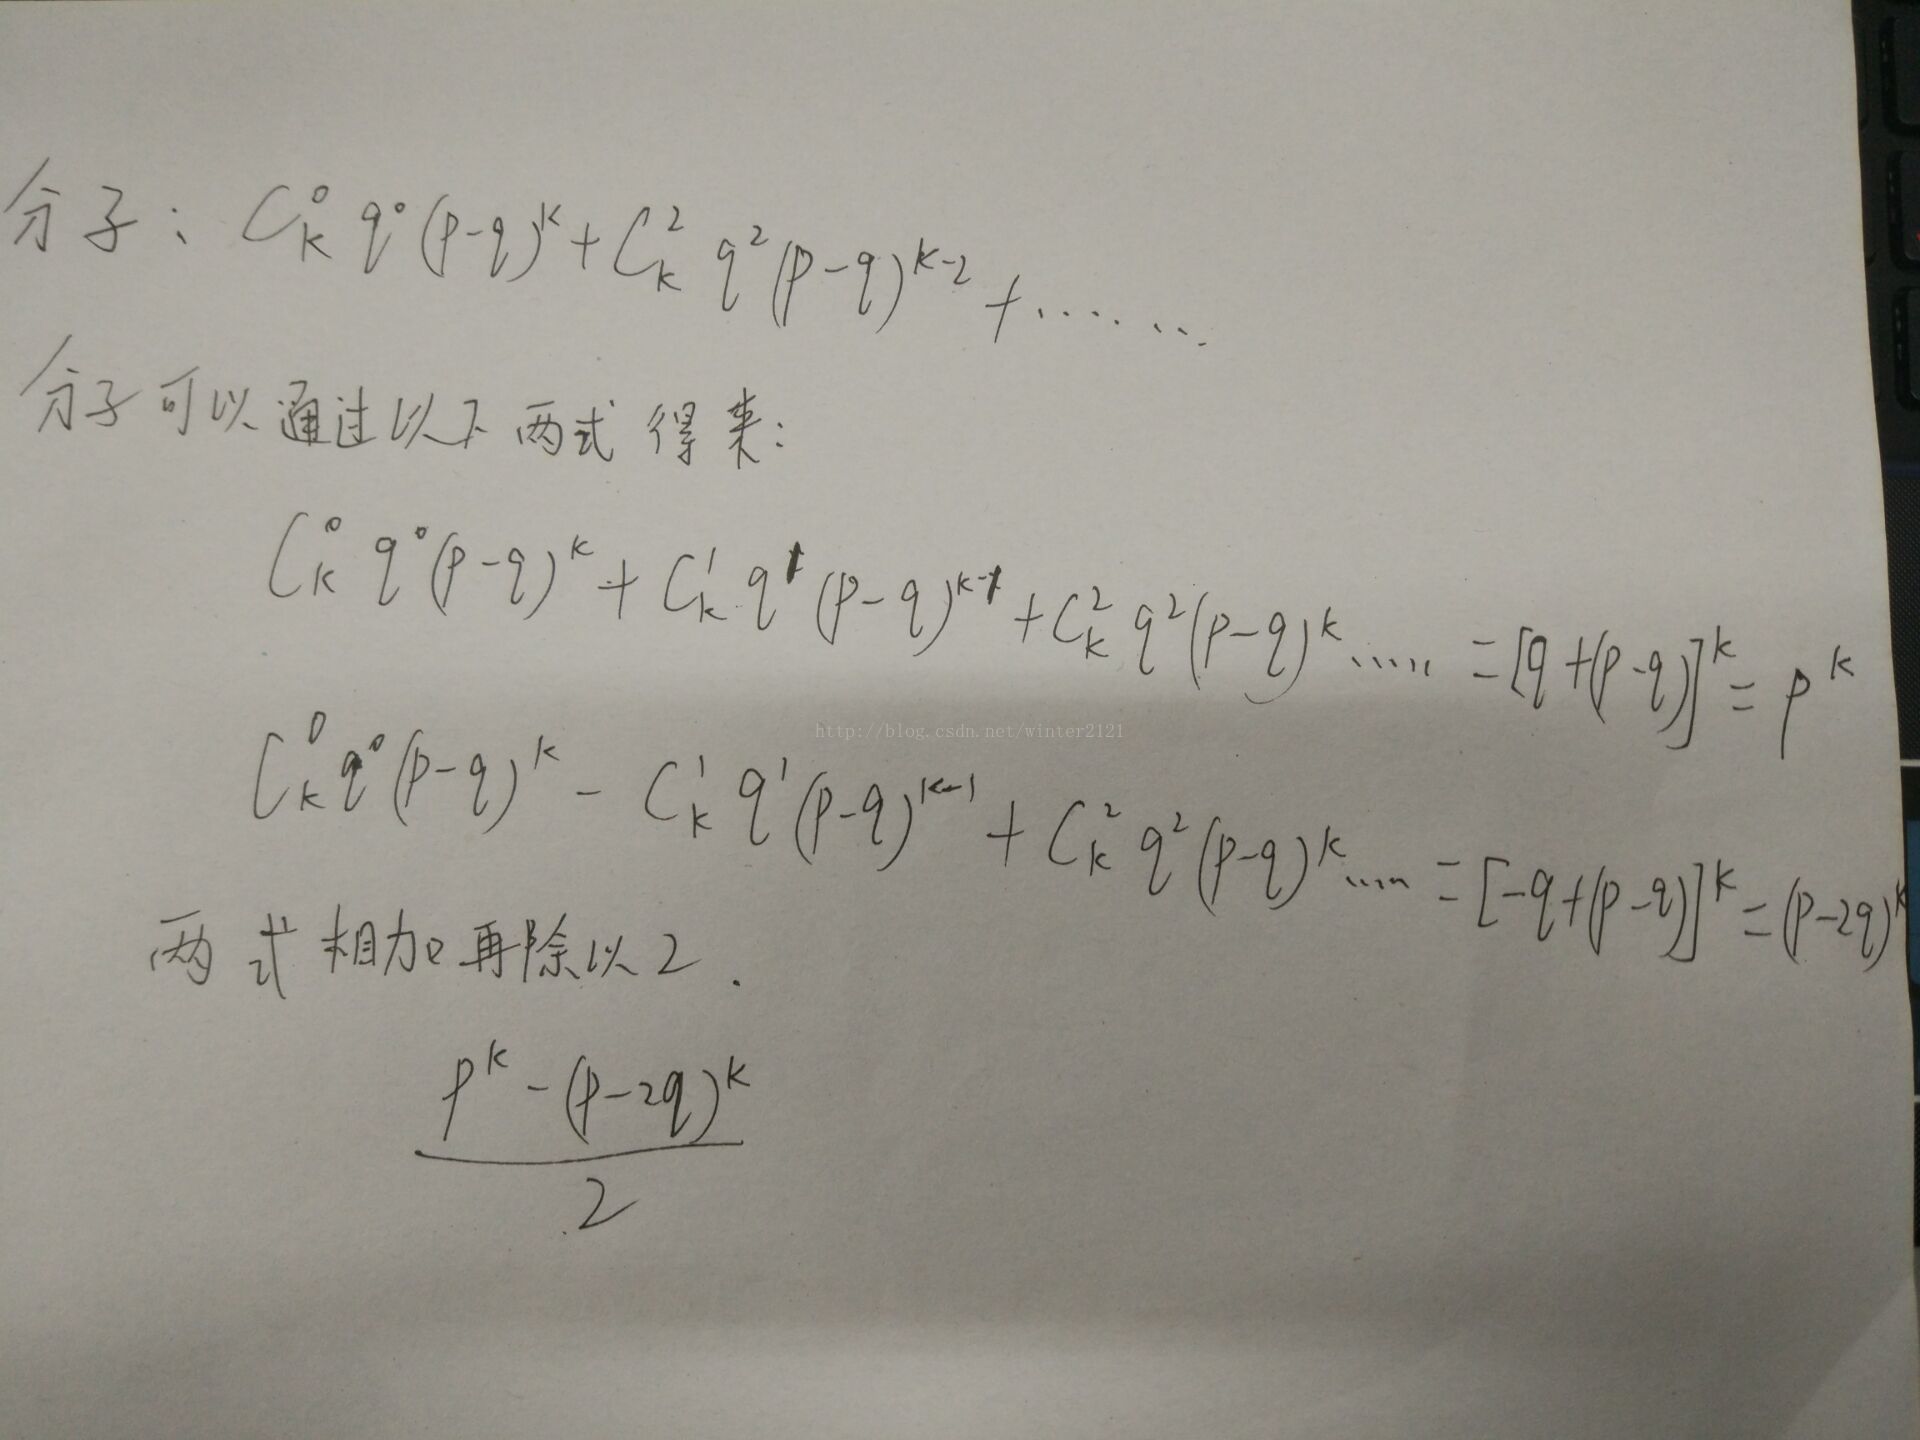 分子: C_k^0 q^0 (p-q)^k + C_k^2 q^2 (p-q)^{k-2} + ·······
分子可以通过以下两式得来:
C_k^0 q^0 (p-q)^k + C_k^1 q^1 (p-q)^{k-1} + C_k^2 q^2 (p-q)^k ····· = [q+(p-q)]^k = p^k
http://blog.csdn.net/winter2121
C_k^0 q^0 (p-q)^k - C_k^1 q^1 (p-q)^{k-1} + C_k^2 q^2 (p-q)^k ····· = [-q+(p-q)]^k = (p-2q)^k
两式相加再除以2.
p^k - (p-2q)^k
2